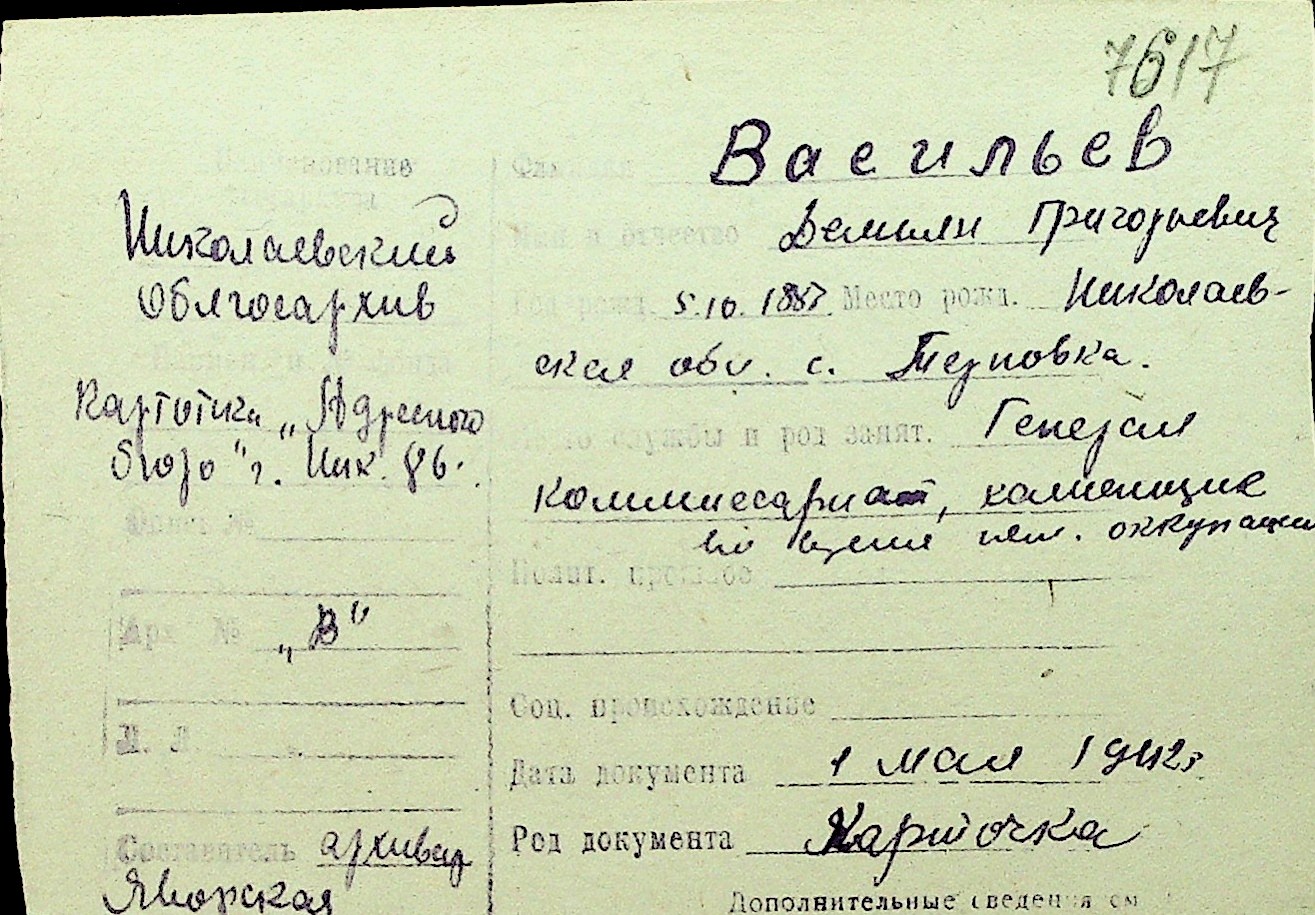 7617
Наименование
Фамилия Васильев
Николаевский
Облгосархив
Имя и отчество Демьян Григорьевич
Год рожд. 5.10.1887. Место рожд. Николаев-
ская обл. с. Терновка.
Картотека „Адресного
бюро" г. Ник.
Место службы и род занят. Генерал
Коммисариат, каменщик
во время нем. оккупации
Фонд №
Полит. прошлое
Арх. № „В"
Соц. происхождение
Л. Л.
Дата документа 1 мая 1942г
Род документа Карточка
Составитель архивар
Яворская
Дополнительные сведения см